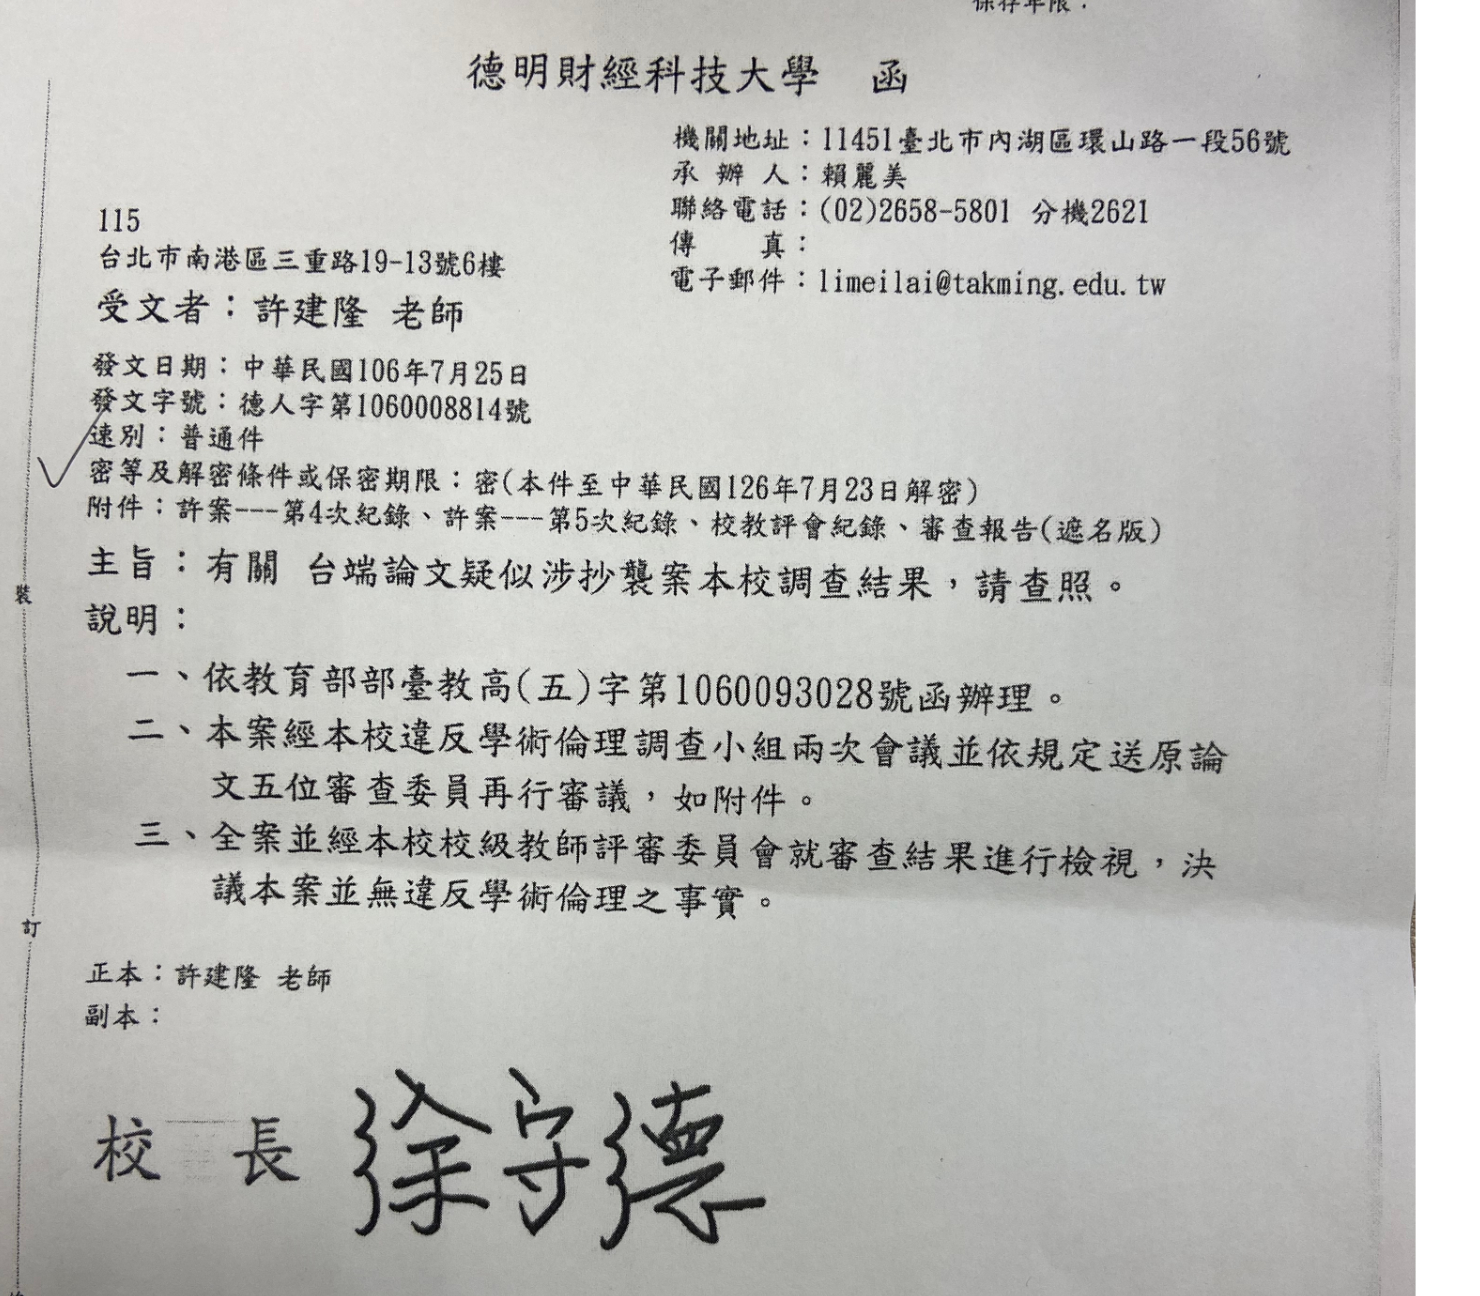 保存年限：
德明財經科技大學　函
機關地址：11451臺北市內湖區環山路一段56號
承 辦 人：賴麗美
聯絡電話：(02)2658-5801 分機2621
傳　　真：
電子郵件：limeilai@takming.edu.tw
115
台北市南港區三重路19-13號6樓
受文者：許建隆 老師
發文日期：中華民國106年7月25日
發文字號：德人字第1060008814號
速別：普通件
密等及解密條件或保密期限：密(本件至中華民國126年7月23日解密)
附件：許案---第4次紀錄、許案---第5次紀錄、校教評會紀錄、審查報告(遮名版)
主旨：有關 台端論文疑似涉抄襲案本校調查結果，請查照。
說明：
一、依教育部部臺教高(五)字第1060093028號函辦理。
二、本案經本校違反學術倫理調查小組兩次會議並依規定送原論
文五位審查委員再行審議，如附件。
三、全案並經本校校級教師評審委員會就審查結果進行檢視，決
議本案並無違反學術倫理之事實。
正本：許建隆 老師
副本：
校　長 徐守德
裝
訂